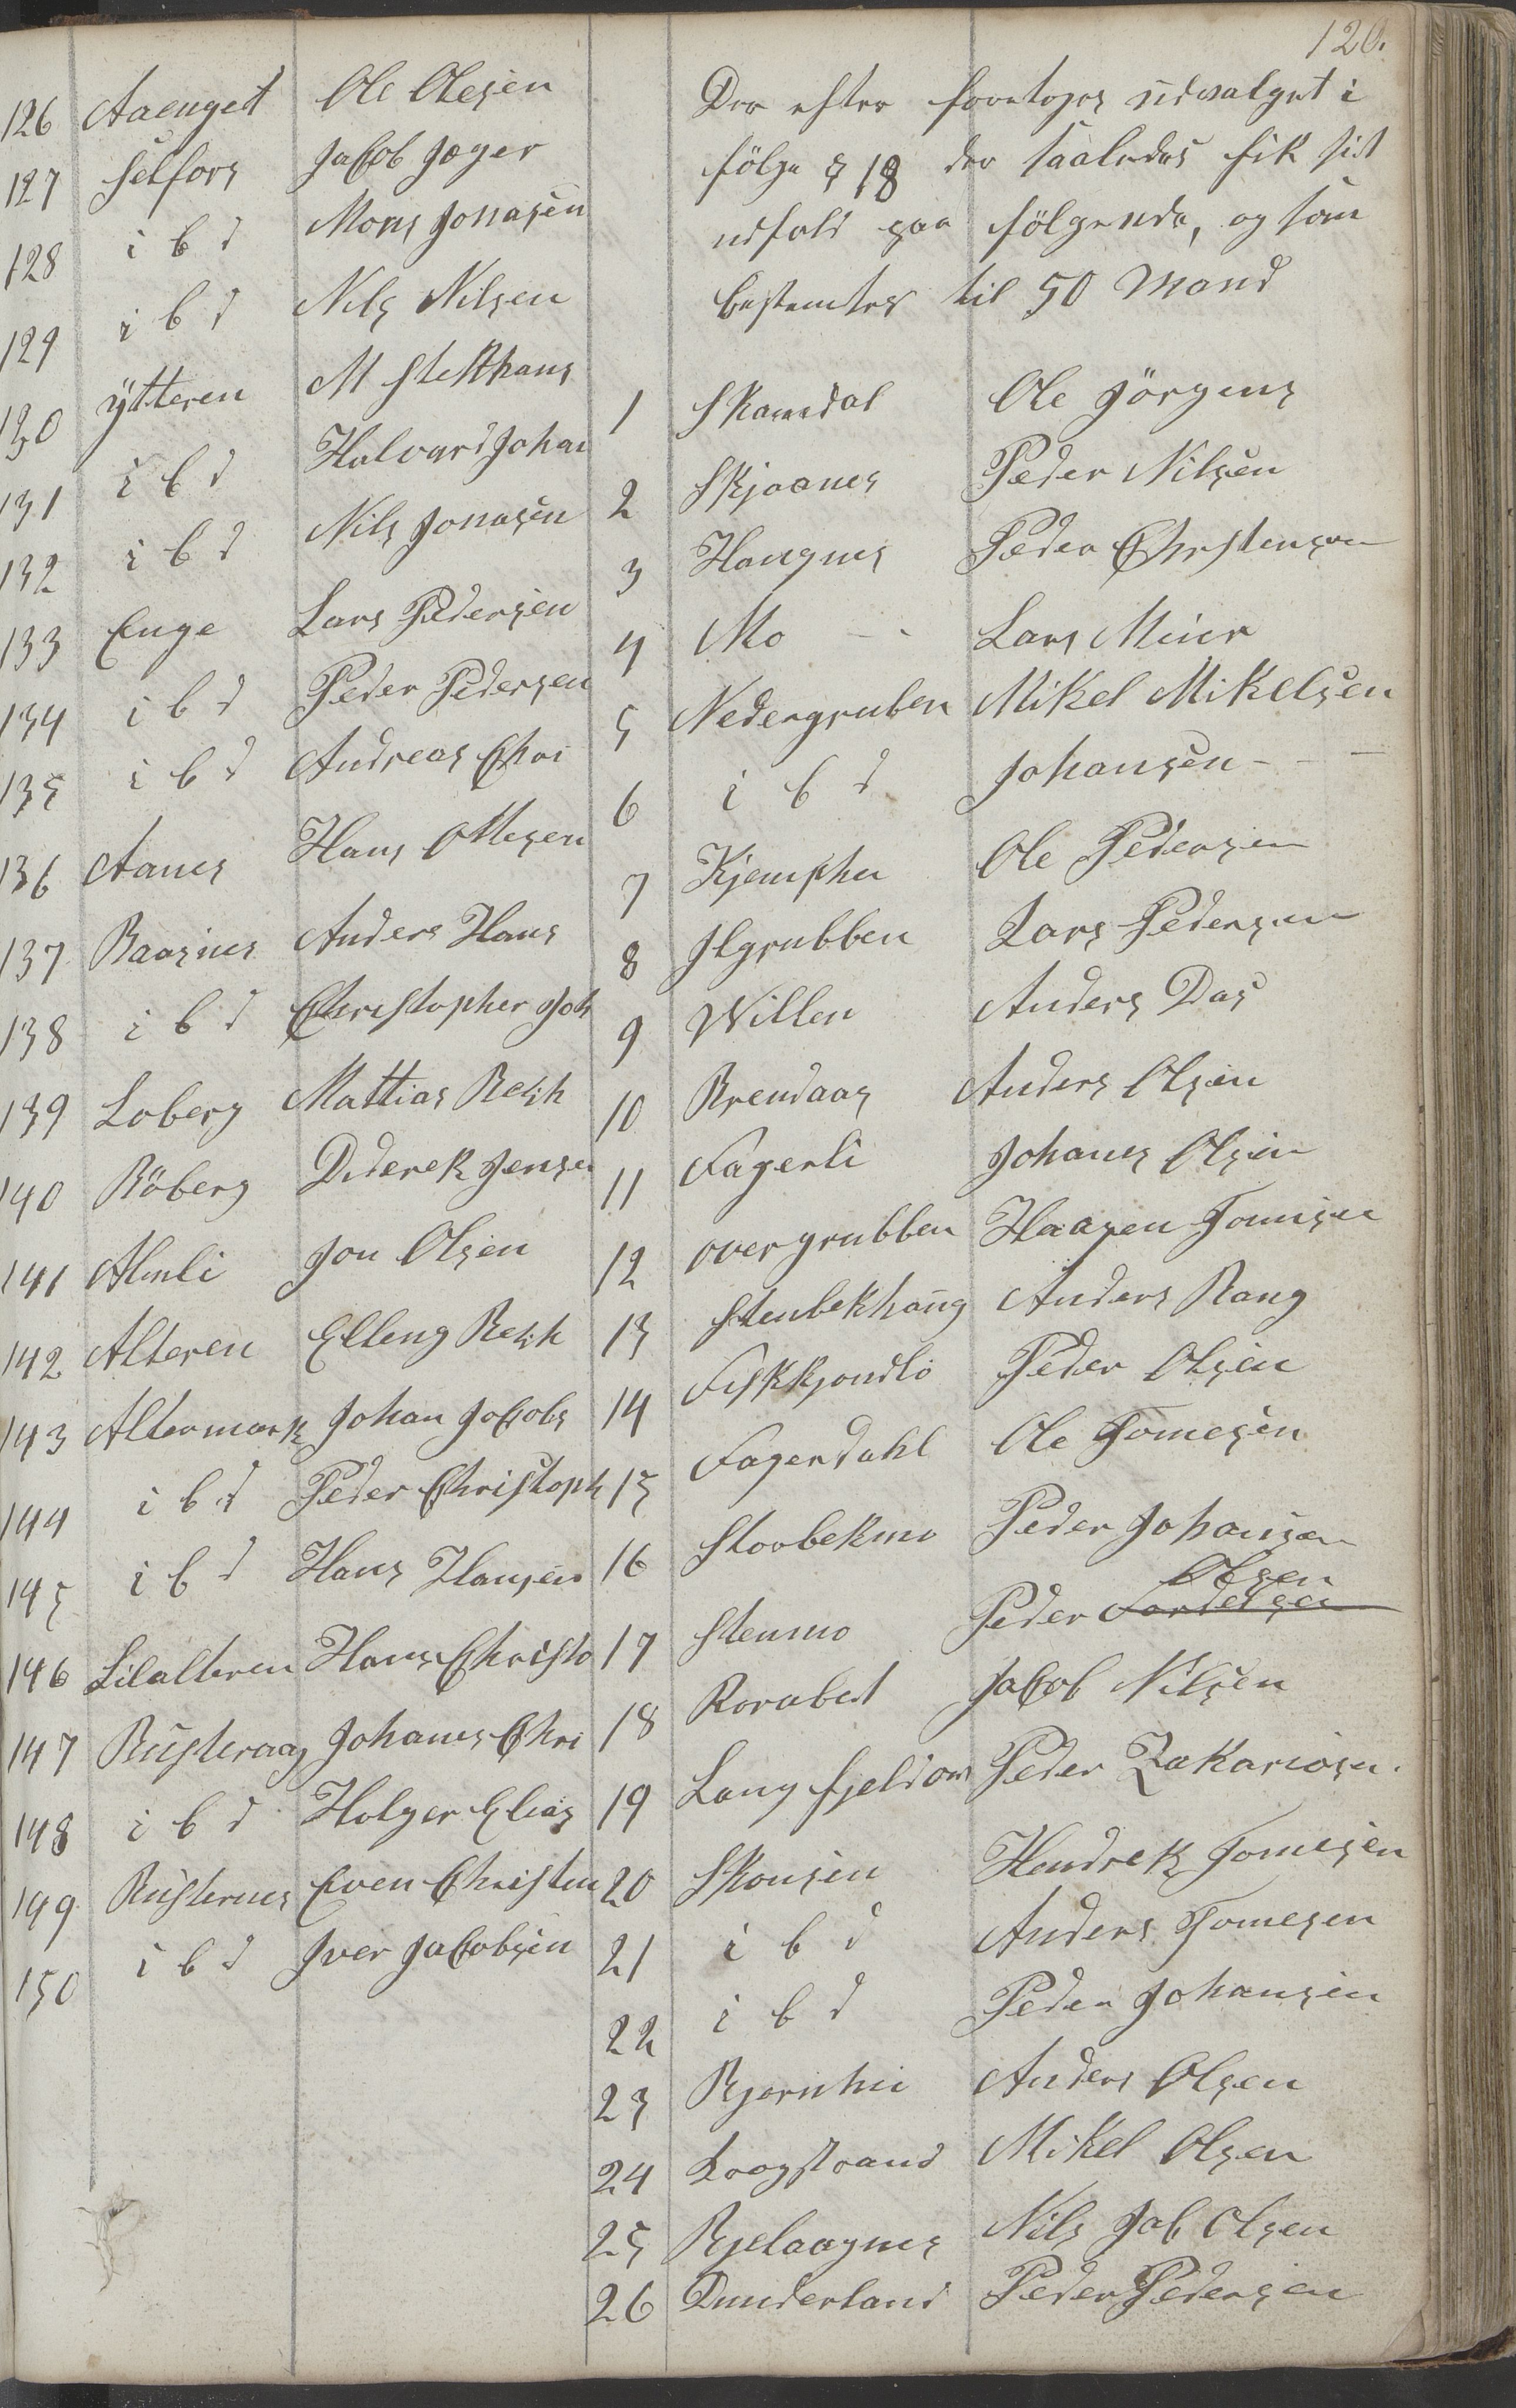 120.
126 Aaenget Ole Olesen
127 Selfors Jacob Jæger
128 i b d Mons Jonasen
129 i b d Nils Nilsen
130 ÿtteren M Stekhans
131 i b d Halvard Johan
132 i b d Nils Jonasen
133 Enge Lars Pedersen
134 i b d Peder Pedersen
135 i b d Andreas Chri
136 Aanes Hans Ottesen
137 Baasnes Anders Hans
138 i b d Christopher Joh
139 Loberg Mattias Resh
140 Röberg Diderek Jensen
141 Almli Jon Olsen
142 Alteren Elleng Resh
143 Altermark Johan Jacobs
144 i b d Peder Christoph
145 i b d Hans Hansen
146 Lilalteren Hans Christo
147 Rusteraas Johanes Chri
148 i b d Holger Elias
149 Rusternes Even Christen
150 i b d Iver Jacobsen
Der efter foretoges udvalget i
fölge § 18 der saaledes fik sit
udfald paa fölgende, og som
bestemtes til 50 Mand
1 Skamdal Ole Jörgens
2 Skjaanes Peder Nilsen
3 Haugnes Peder Christensen
4 Mo - - Lars Meier
5 Nedergruben Mikel Mikelsen
6 i b d Johansen - - -
7 Kjemphei Ole Pedersen
8 Ilgrubben Lars Pedersen
9 Willen Anders Das
10 Brendaas Anders Olsen
11 Fagerli Johanes Olsen
12 overgrubben Haagen Tomesen
13 Stenbekhaug Anders Rang
14 Fiskkjondli Peder Olsen
15 Fagerdahl Ole Tomesen
16 Storbekmo Peder Johansen
Olsen
17 Stenmo Peder
18 Rorabet Jacob Nilsen
19 Langfjeldom Peder Zakariasen.
20 Skonsen Hendrek Tomesen
21 i b d Anders Tomesen
22 i b d Peder Johansen
23 Bjornhei Anders Olsen
24 Krogstrand Mikel Olsen
25 Bjelaagnes Nils Job Olsen
26 Dunderland Peder Pedersen